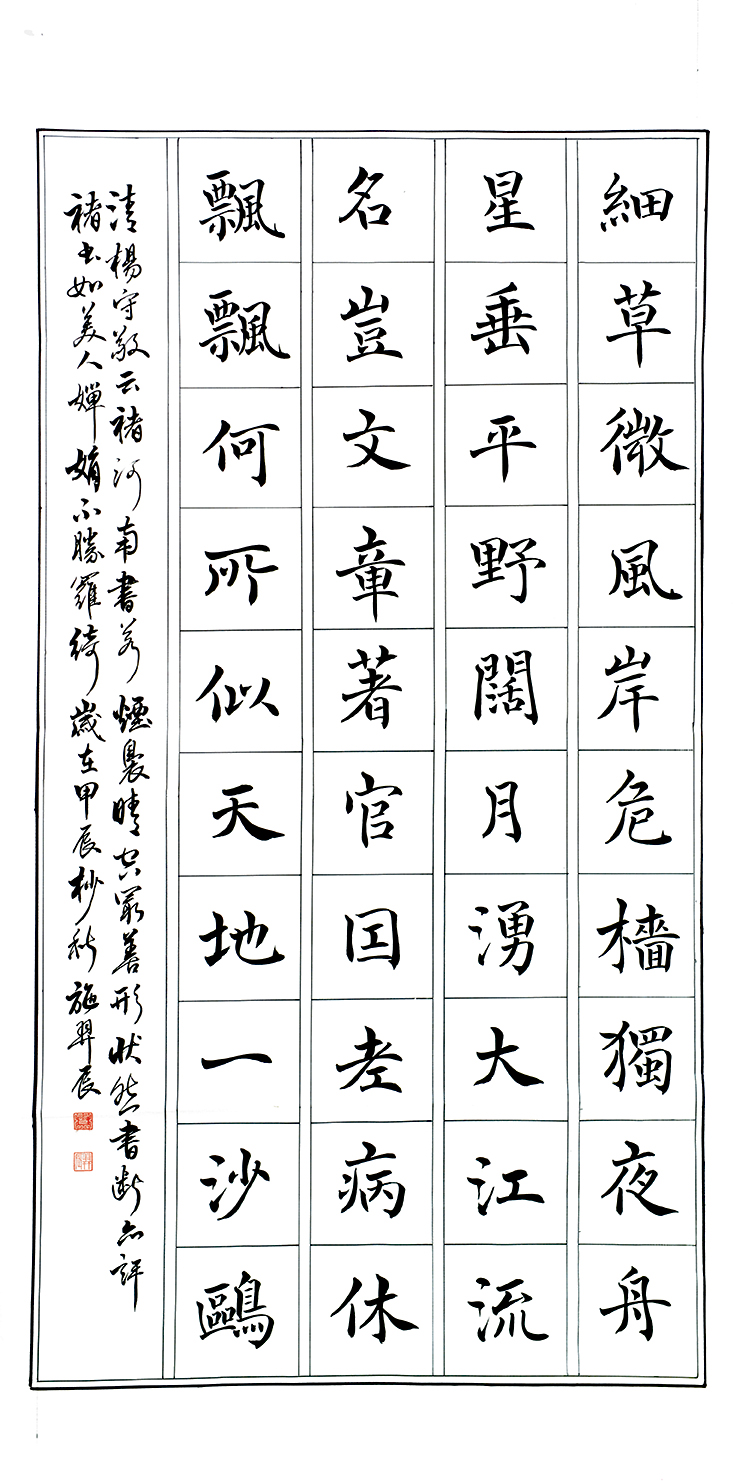 細草微風岸危檣獨夜舟
星垂平野闊月湧大江流
名豈文章著官因老病休
飄飄何所似天地一沙鷗
清楊守敬云褚河南書若煙裊晴空最善形狀然書斷亦評
褚書如美人嬋娟不勝羅綺歲在甲辰杪秋施羿辰